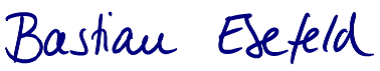 Bastian Esefeld